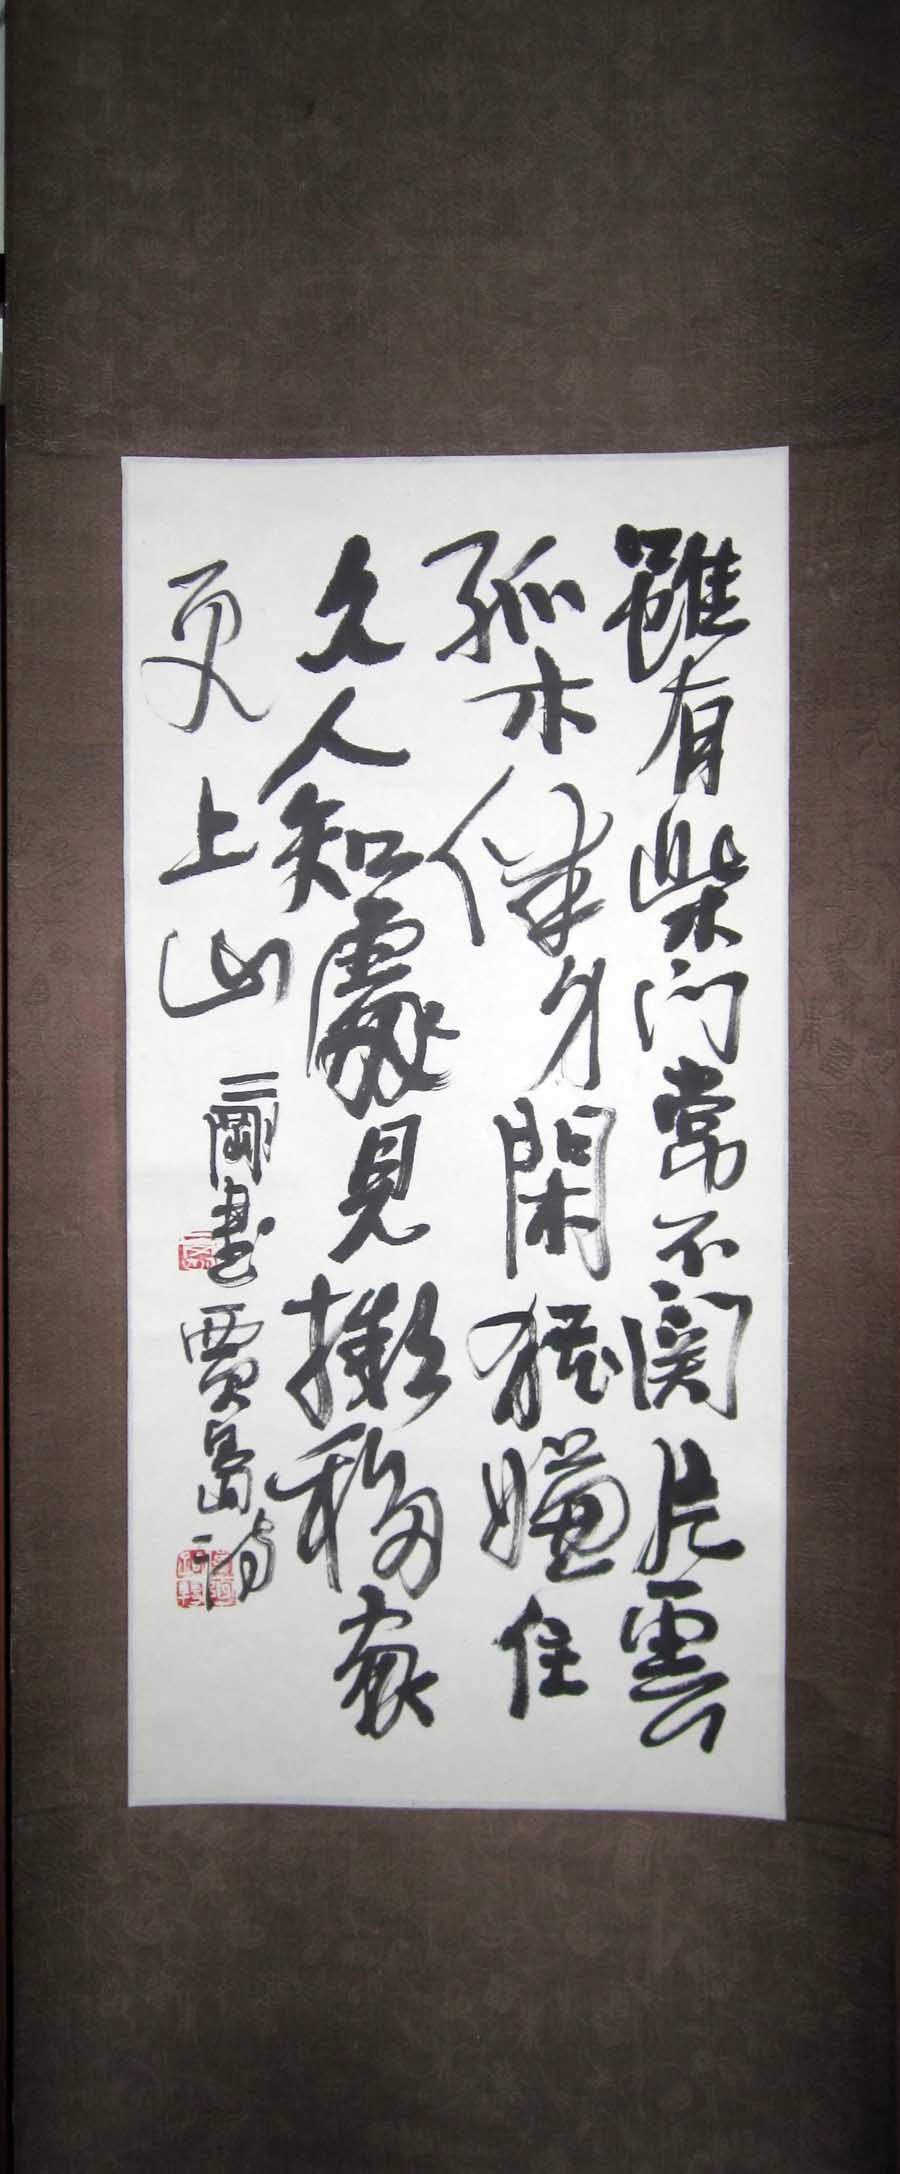 雖有柴门常不関片雲
孤木伴身閑猶嫌住
久人知處見擬移家
更上山
二剛書賈島詩